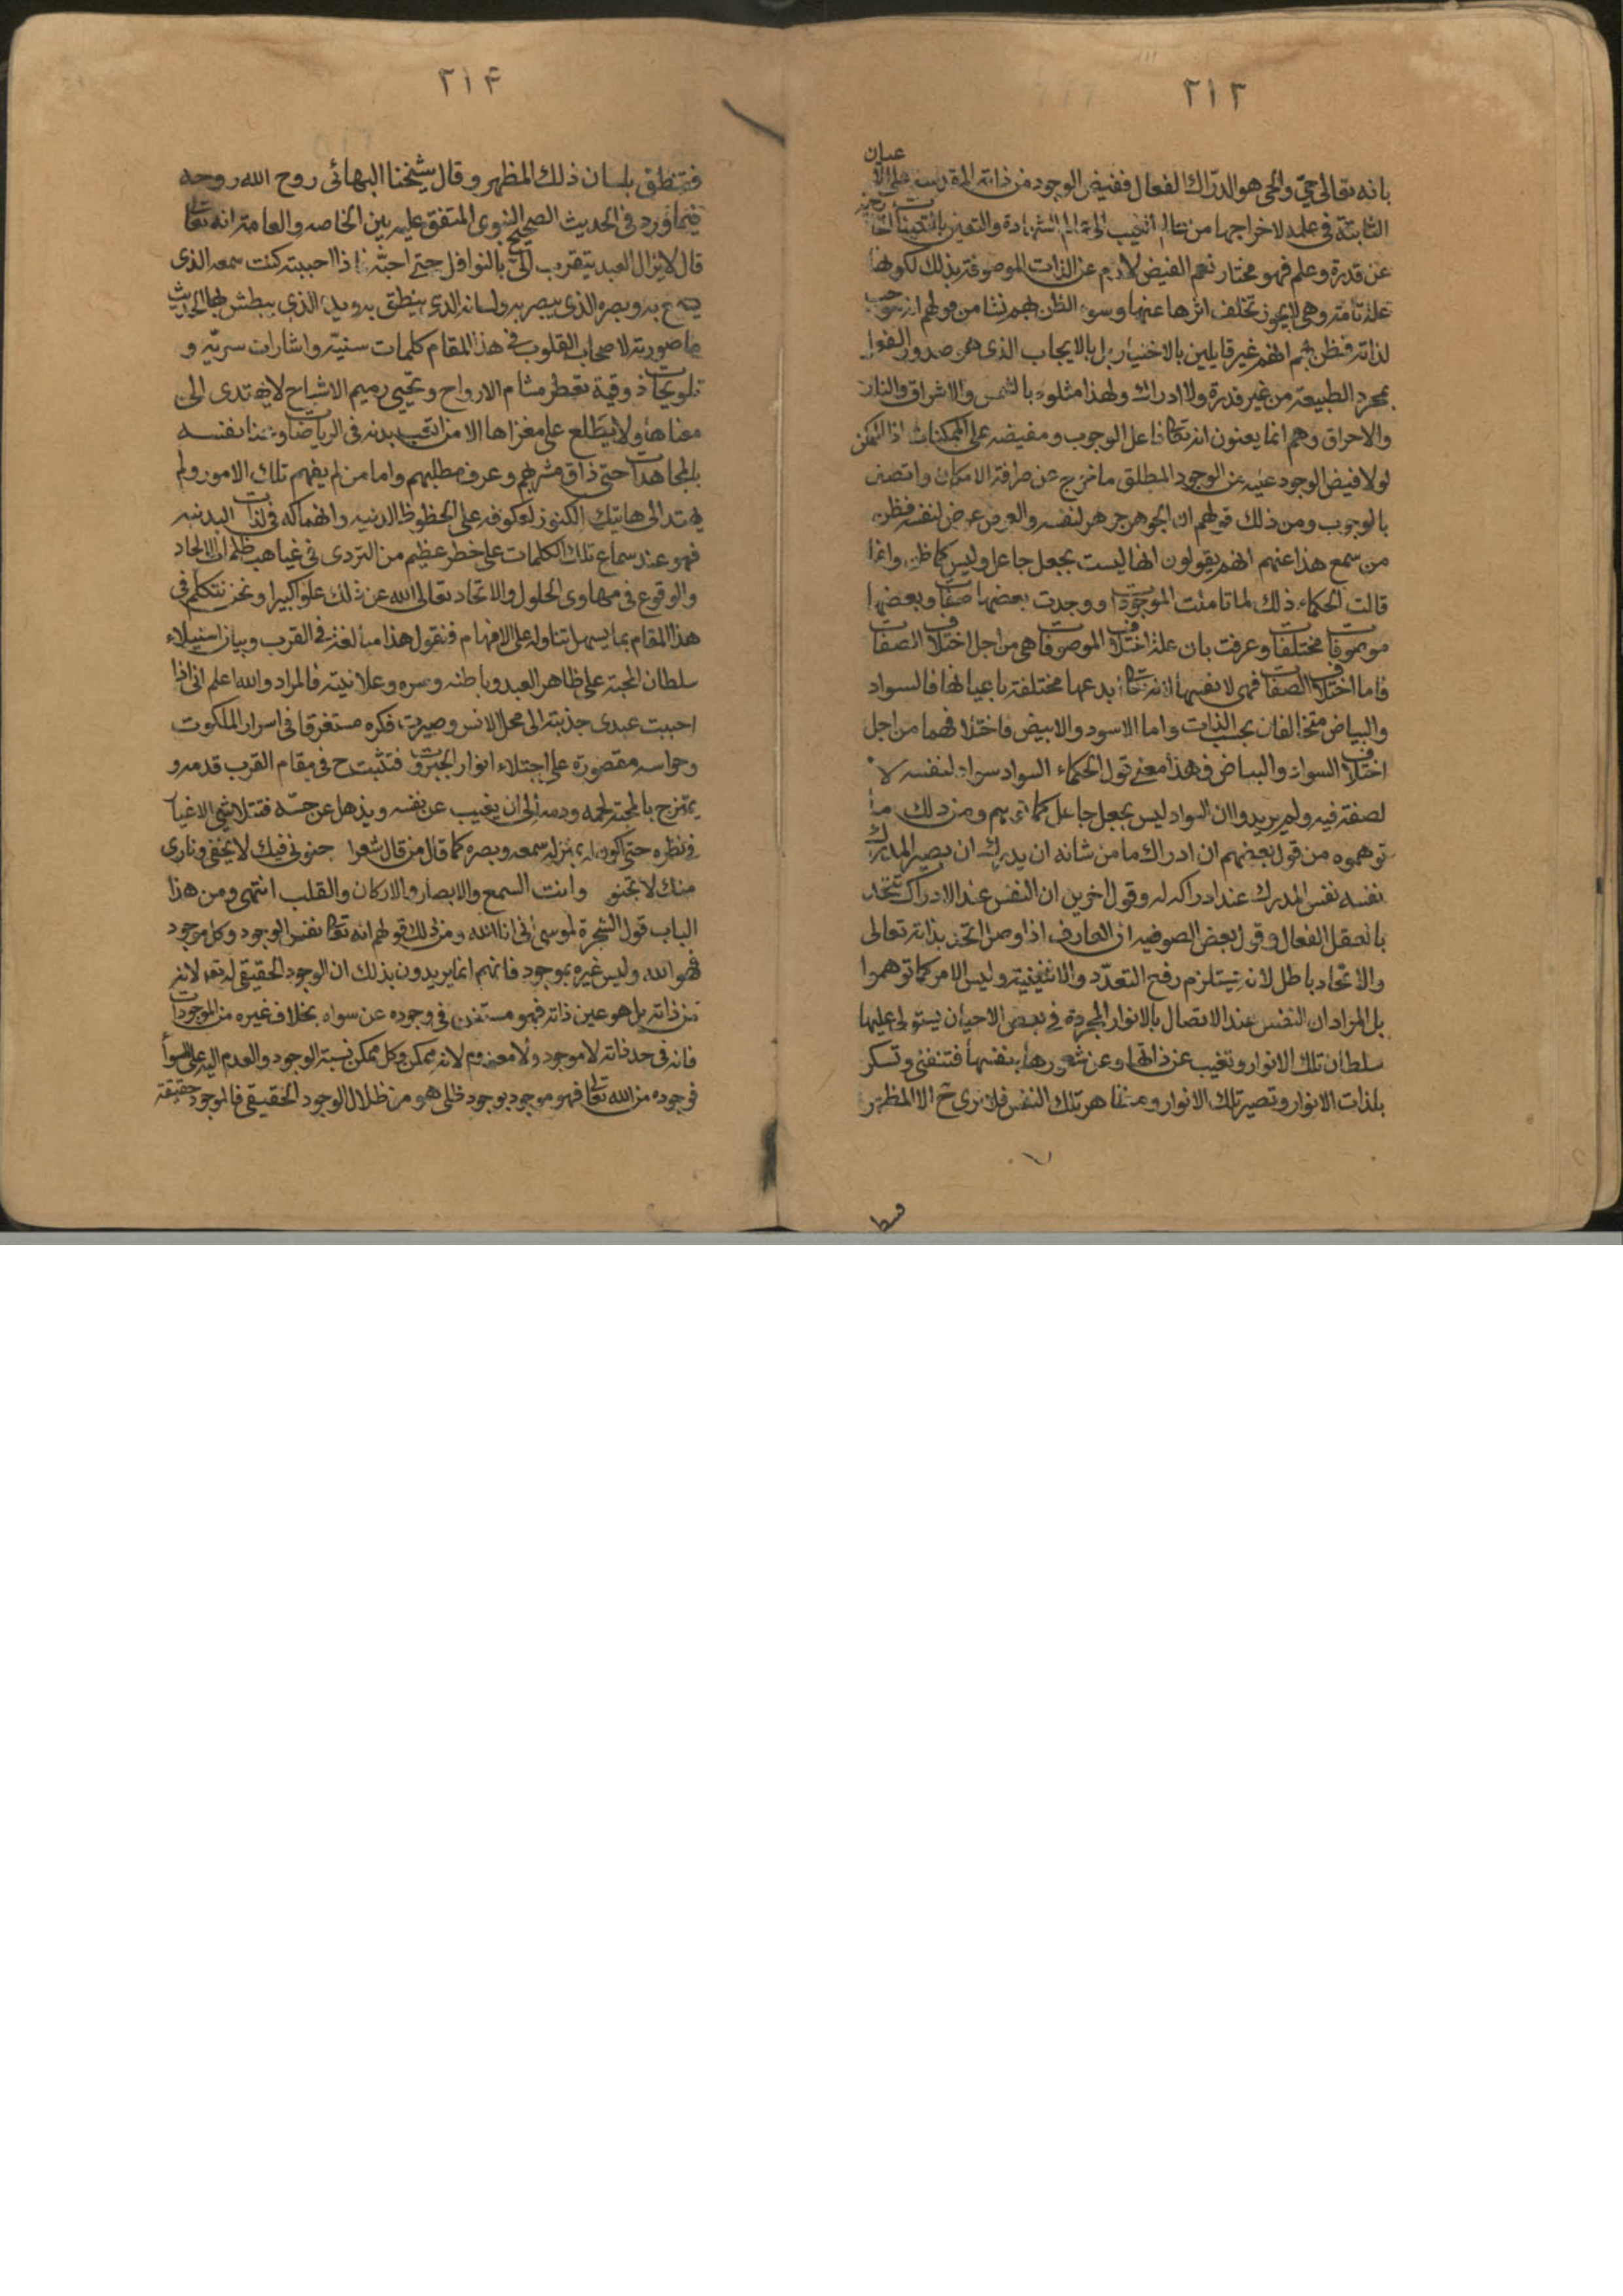 ۲۱۳
بانه تعالى حىّ والحى هو الدرّاك الفعال ففيض الوجود من ذاته المقدسة على الاعيان
الثابتة فى علمه لاخراجها من عالم الغيب الى عالم الشهادة والتعين بالتعينات
عن قدرة وعلم فهو مختار نعم الفيض لازم عن الذات الموصوفة بذلك لكونها
علة تامة وهى لايجوز تخلف اثرها عنها وسوء الظن بهم نشا من قولهم انه موجب
لذاته فظن بهم انهم غير قايلين بالاختيار بل بالايجاب الذى هو صدور الفعل
بمجرد الطبيعة من غير قدرة ولا ادراك ولهذا مثلوه بالشمس والاشراق والنار
والاحراق وهم انما يعنون انه تعالى فاعل الوجوب ومفيضه على الممكنات اذ الممكن
لولا فيض الوجود عليه من الوجود المطلق ما خرج عن صرافة الامكان واتصف
بالوجوب ومن ذلك قولهم ان الجوهر جوهر لنفسه والعرض عرض لنفسه فظن
من سمع هذا عنهم انهم يقولون انها ليست بجعل جاعل وليس كما ظن وانما
قالت الحكماء ذلك لما تاملت الموجودات ووجدت بعضها صفات وبعضها
موصوفات مختلفات وعرفت بان علة اختلاف الموصوفات هى من اجل اختلاف الصفات
فاما اختلاف الصفات فهى لانفسها لانه تعالى ابدعها مختلفة باعيانها فالسواد
والبياض متخالفان بحسب الذات واما الاسود والابيض فاختلافهما من اجل
اختلاف السواد والبياض فهذا معنى قول الحكماء السواد سواد لنفسه لا
لصفة فيه ولم يريدوا ان السواد ليس بجعل جاعل كما توهم ومن ذلك ما
توهموه من قول بعضهم ان ادراك ما من شانه ان يدرك ان يصير المدرك
نفسه نفس المدرك عند ادراكه له وقول اخرين ان النفس عند الادراك تتحد
بالعقل الفعال وقول بعض الصوفيه ان العارف اذا وصل اتحد بذاته تعالى
والاتحاد باطل لانه يستلزم رفع التعدّد والاثنينية وليس الامر كما توهموا
بل المراد ان النفس عند الاتصال بالانوار المجردة فى بعض الاحيان يستولى عليها
سلطان تلك الانوار وتغيب عن ذاتها وعن شعورها بنفسها فتنفنى وتسكر
بلذات الانوار وتصير تلك الانوار ومظاهر تلك النفس فلا ترى ح الا المظهر
۲۱۴
فتنطق بلسان ذلك المظهر وقال شيخنا البهائى روح الله روحه
فيما ورد فى الحديث الصحيح النبوى المتفق عليه بين الخاصه والعامة انه تعالى
قال لايزال العبد يتقرب الىّ بالنوافل حتى احبّه فاذا احببته كنت سمعه الذى
يسمع به وبصره الذى يبصر به ولسانه الذى ينطق به ويده الذى يبطش بها الحديث
ما صورته لاصحاب القلوب فى هذا المقام كلمات سنيّه واشارات سريّه و
تلويحات ذوقية تعطر مشام الارواح وتحيى رميم الاشباح لايهتدى الى
معناها ولا يطّلع على مغزاها الا من اتعب بدنه فى الرياضات وعنا نفسه
بالمجاهدات حتى ذاق مشربهم وعرف مطلبهم واما من لم يفهم تلك الامور ولم
يهتد الى هاتيك الكنوز لعكوفه على الحظوظ الدنيه وانهماكه فى لذات البدنيه
فهو عند سماع تلك الكلمات على خطر عظيم من التردى فى غياهب ظلمات الالحاد
والوقوع فى مهاوى الحلول والاتحاد تعالى الله عن ذلك علوّا كبيرا ونحن نتكلم فى
هذا المقام بما يسهل تناوله على الافهام فنقول هذا مبالغة فى القرب وبيان استيلاء
سلطان المحبة على ظاهر العبد وباطنه وسره وعلانيته فالمراد والله اعلم انى اذا
احببت عبدى جذبته الى محل الانس وصيرت فكره مستغرقا فى اسرار الملكوت
وحواسه مقصورة على اجتلاء انوار الجبروت فتثبت ح فى مقام القرب قدمه و
يمتزج بالمحبة لحمه ودمه الى ان يغيب عن نفسه ويذهل عن حسّه فتتلاشى الاغيار
فى نظره حتى اكون له بمنزلة سمعه وبصره كما قال من قال شعرا جنونى فيك لايخفى ونارى
منك لاتخبو وانت السمع والابصار والاركان والقلب انتهى ومن هذا
الباب قول الشجرة لموسى انى انا الله ومن ذلك قولهم انه تعالى نفس الوجود وكل موجود
فهو الله وليس غيره بموجود فانهم انما يريدون بذلك ان الوجود الحقيقى له تعالى لانه
من ذاته بل هو عين ذاته فهو مستغن فى وجوده عن سواه بخلاف غيره من الموجودات
فانه فى حد ذاته لا موجود ولا معدوم لانه ممكن وكل ممكن نسبة الوجود والعدم اليه على السوا
فوجوده من الله تعالى فهو موجود بوجود ظلى هو من ظلال الوجود الحقيقى فالموجود حقيقة